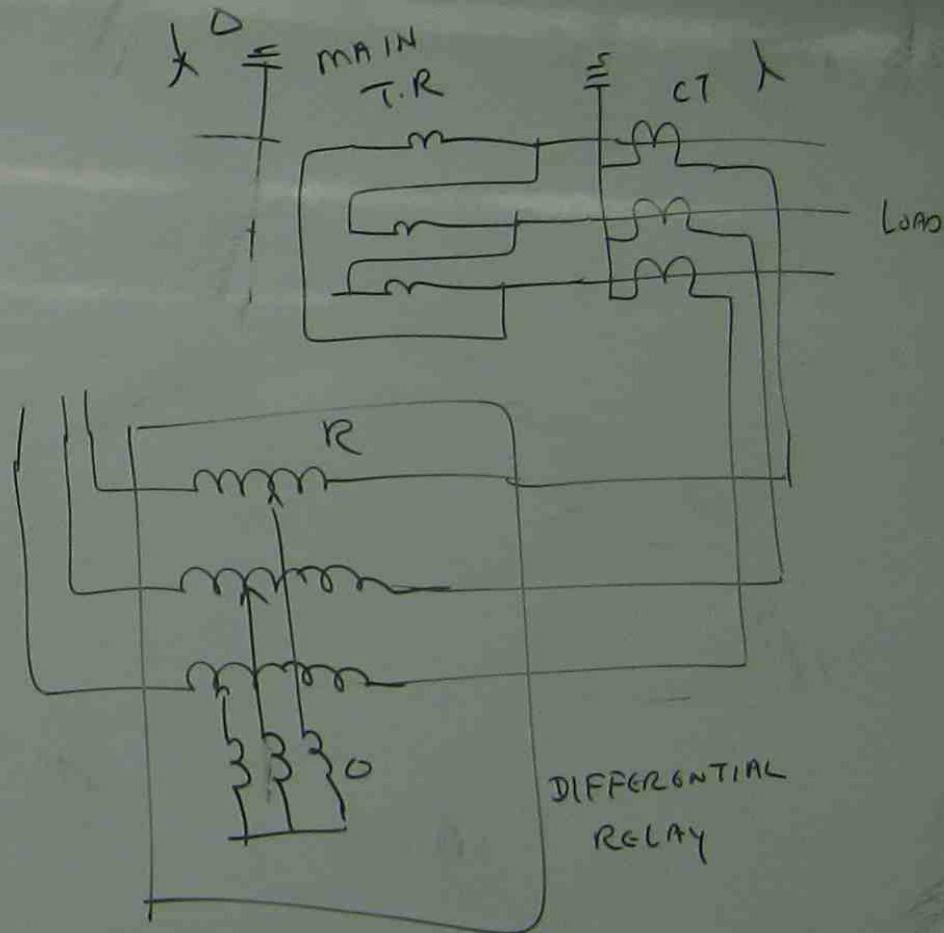 MAIN
T.R
CT
LOAD
R
O
DIFFERENTIAL
RELAY